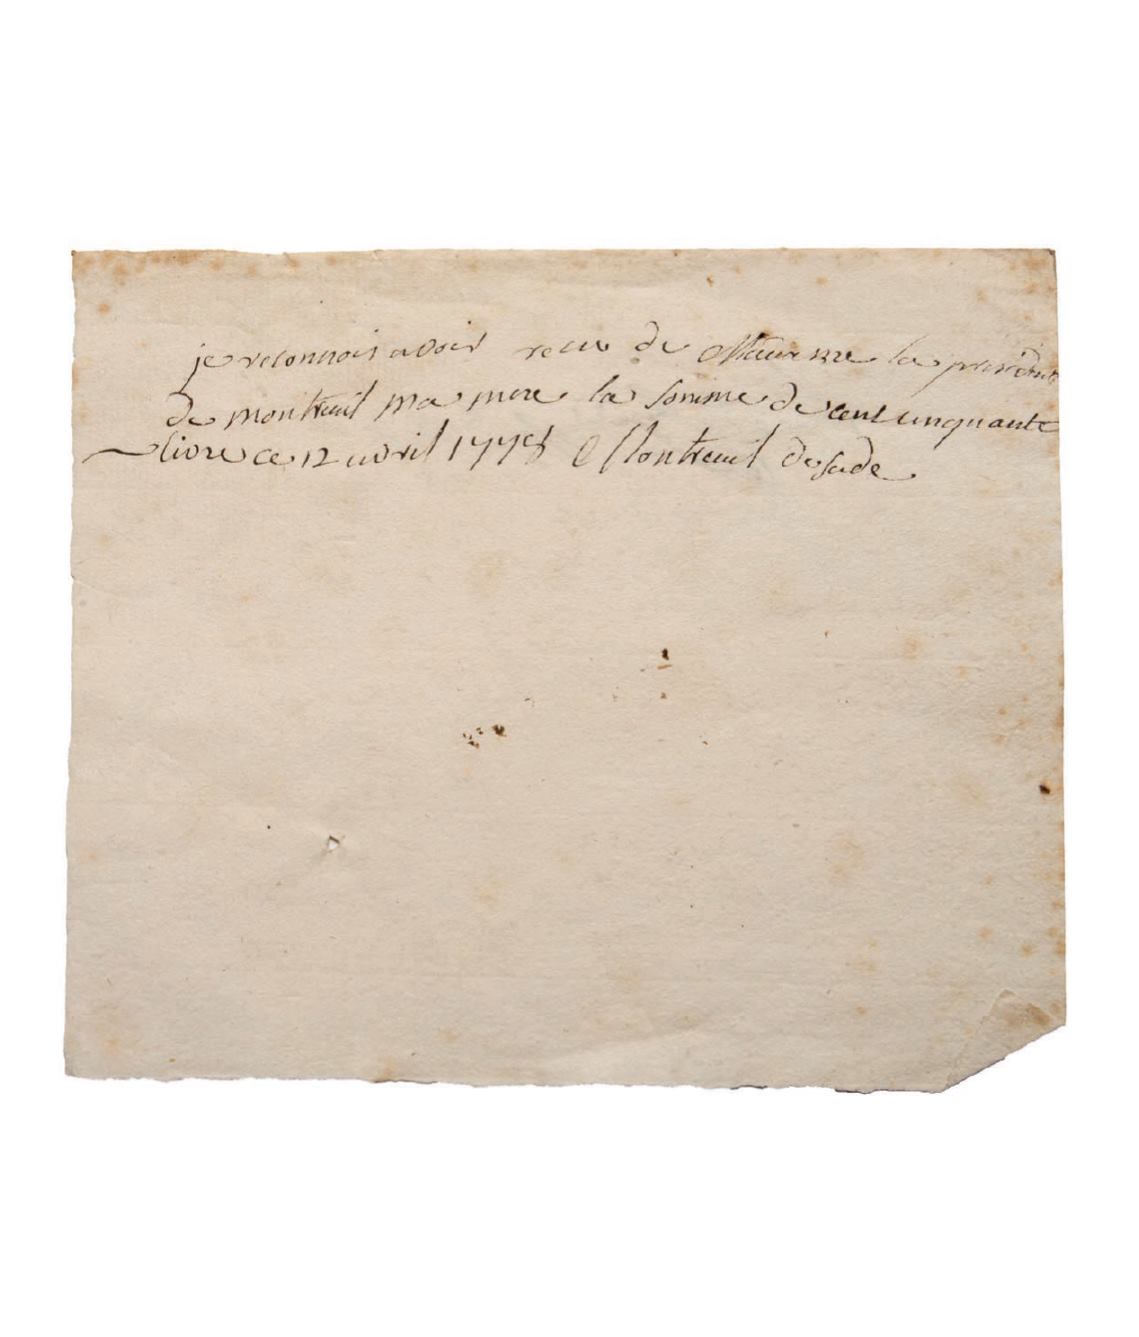 je reconnois avoir recu de Madame la présidente
de montreuil ma mere la somme de cent cinquante
livre ce 12 avril 1778 Montreuil de sade